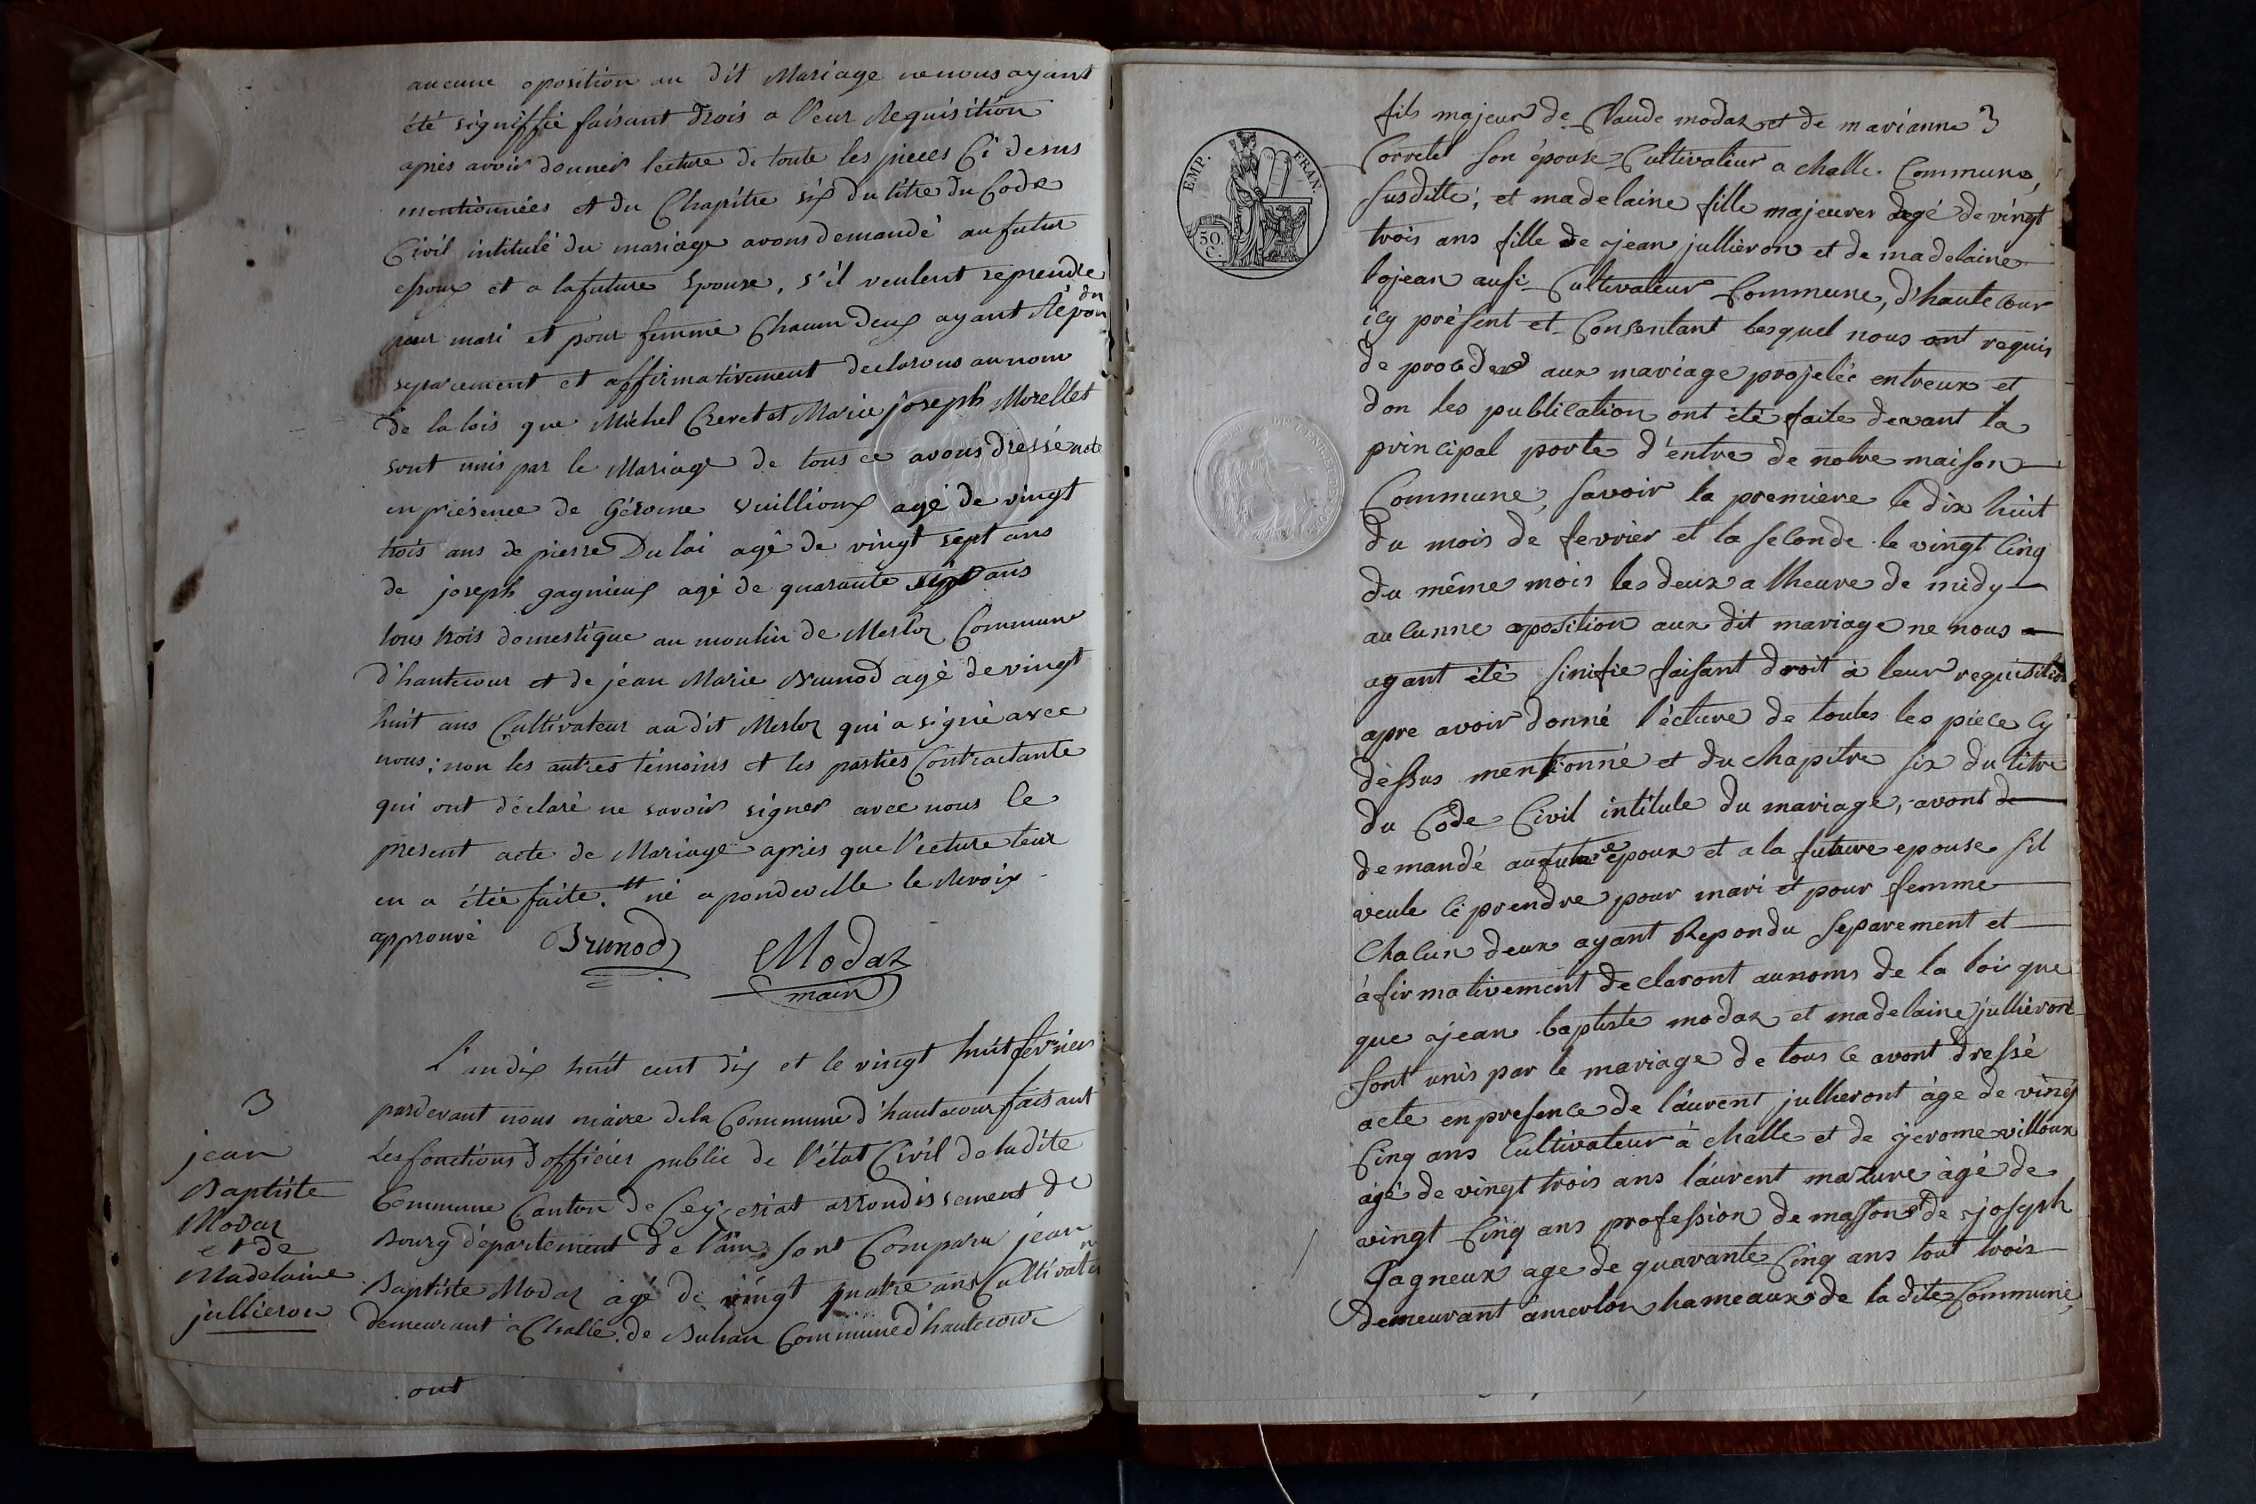 aucune oposition au dit Mariage ne nous ayant
été signiffié faisant drois a l'eur Requisition
après avoir donner lecture de toute les pieces Ci desus
mentionnées et du Chapitre six du titre du Code
Civil intitulé du mariage avons demandé au futur
espoux et a la future Epouse, s'il veulent seprendre
pour mari et pour femme Chacun deux ayant Répondu
separement et affirmativement declarons au nom
de la lois que Michel Chevet et Marie joseph Morellet
sont unis par le Mariage de tous ce avons dressé acte
en présence de Gérome Vuillioux agé de vingt
trois ans de pierre Dulai agé de vingt sept ans
de joseph gagnieux agé de quarante ans
tous trois domestique au moulin de Merloz Commune
d'hautecour et de jéan Marie Brunod agé de vingt
huit ans Cultivateur au dit Merloz qui a signé avec
nous; non les autres témoins et les parties Contractante
qui ont déclaré ne savoir signer avec nous le
present acte de Mariage après que l'ecture leur
en a étée faite.
approuvé Brunod
Modaz
maire
L'an dix huit cent dix et le vingt huit fevrier
3
pardevant nous maire dela Commune d'hautecour faisant
jean
Les fonctions d'officier public de l'état Civil de ladite
Baptiste
Commune Canton de Ceyzeriat arrondissement de
Modaz
Bourg département de l'ain sont Comparu jean
et de
Madelaine
Baptiste Modaz agé de vingt quatre ans Cultivateur
jullieron
demeurant à Challe de Buhan Commune d'hautecour
ont
3
fils majeur de Claude modaz et de marianne
Corretel son épouse Cultivateur a challe Commune
susditte; et madelaine fille majeures agé de vingt
trois ans fille de jean jullieron et de madelaine
bojean ausi Cultivateur Commune, d'hautecour
icy présent et Consentant lesquel nous ont requis
de proceder aux mariage projetée entreux et
don les publication ont été faite devant la
principal porte d'entre de notre maison
Commune, savoir la première le dix huit
du mois de fevrier et la seconde le vingt cinq
du même mois les deux a lheure de midy
aucunne oposition aux dit mariage ne nous
ayant été sinifie faisant droit à leur requisition
apre avoir donné l'écture de toutes les piéce cy
dessus mentionné et du chapitre six du titre
du Code Civil intitule du mariage, avont de
demandé aufuture époux et a la future epouse sil
veule ce prendre pour mari et pour femme
Chacun deux ayant Repondu separement et
àfirmativement declaront aunoms de la loi que
que jean baptiste modaz et madelaine jullieront
sont unis par le mariage de tous ce avont dressé
acte en presence de laurent jullieront àge de vingt
Cinq ans Cultivateur à challe et de gerome villoux
agé de vingt trois ans laurent mazure àgé de
vingt Cinq ans profession de masson et de joseph
Gagneux age de quarante Cinq ans tout trois
demeurant àmerlon hameaux de la dite Commune
EMP. FRAN.
50.
C.